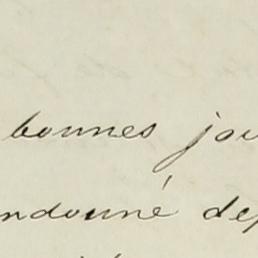 bonnes jou
ndonné dep